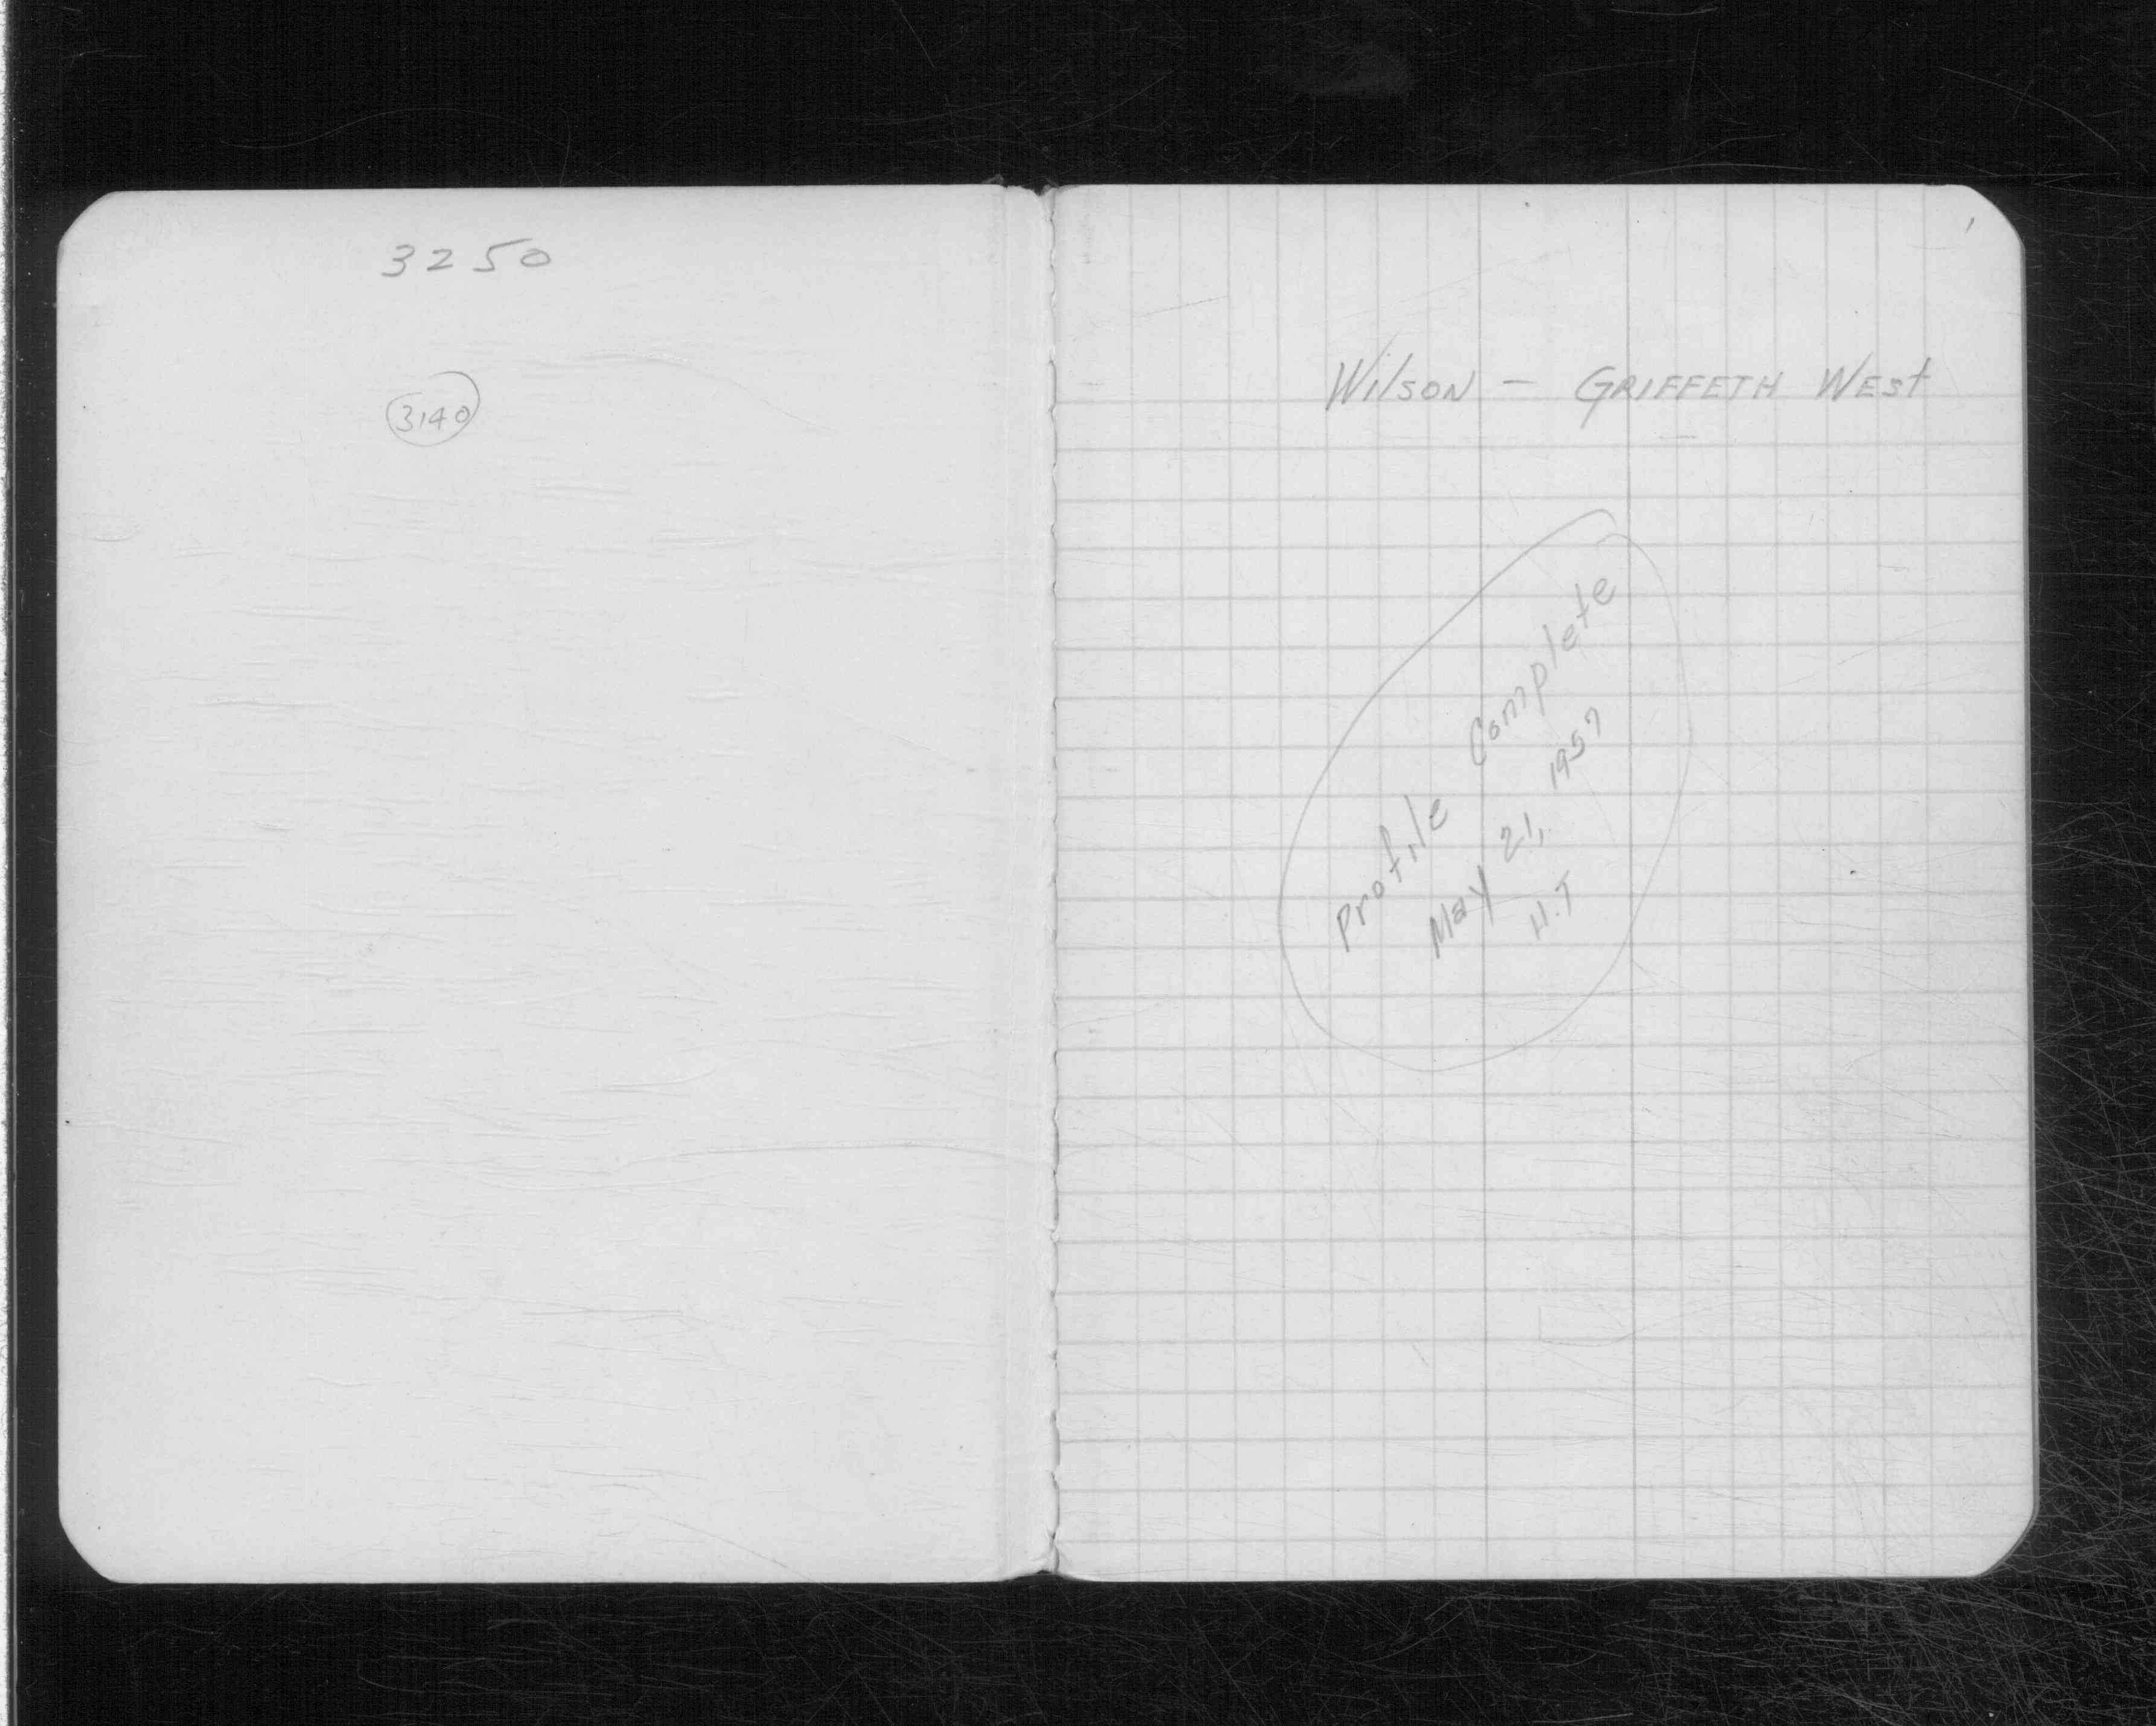 3250
3140
1
Wilson - GRIFFETH WEST
Profile Complete
May 21, 1957
H.T